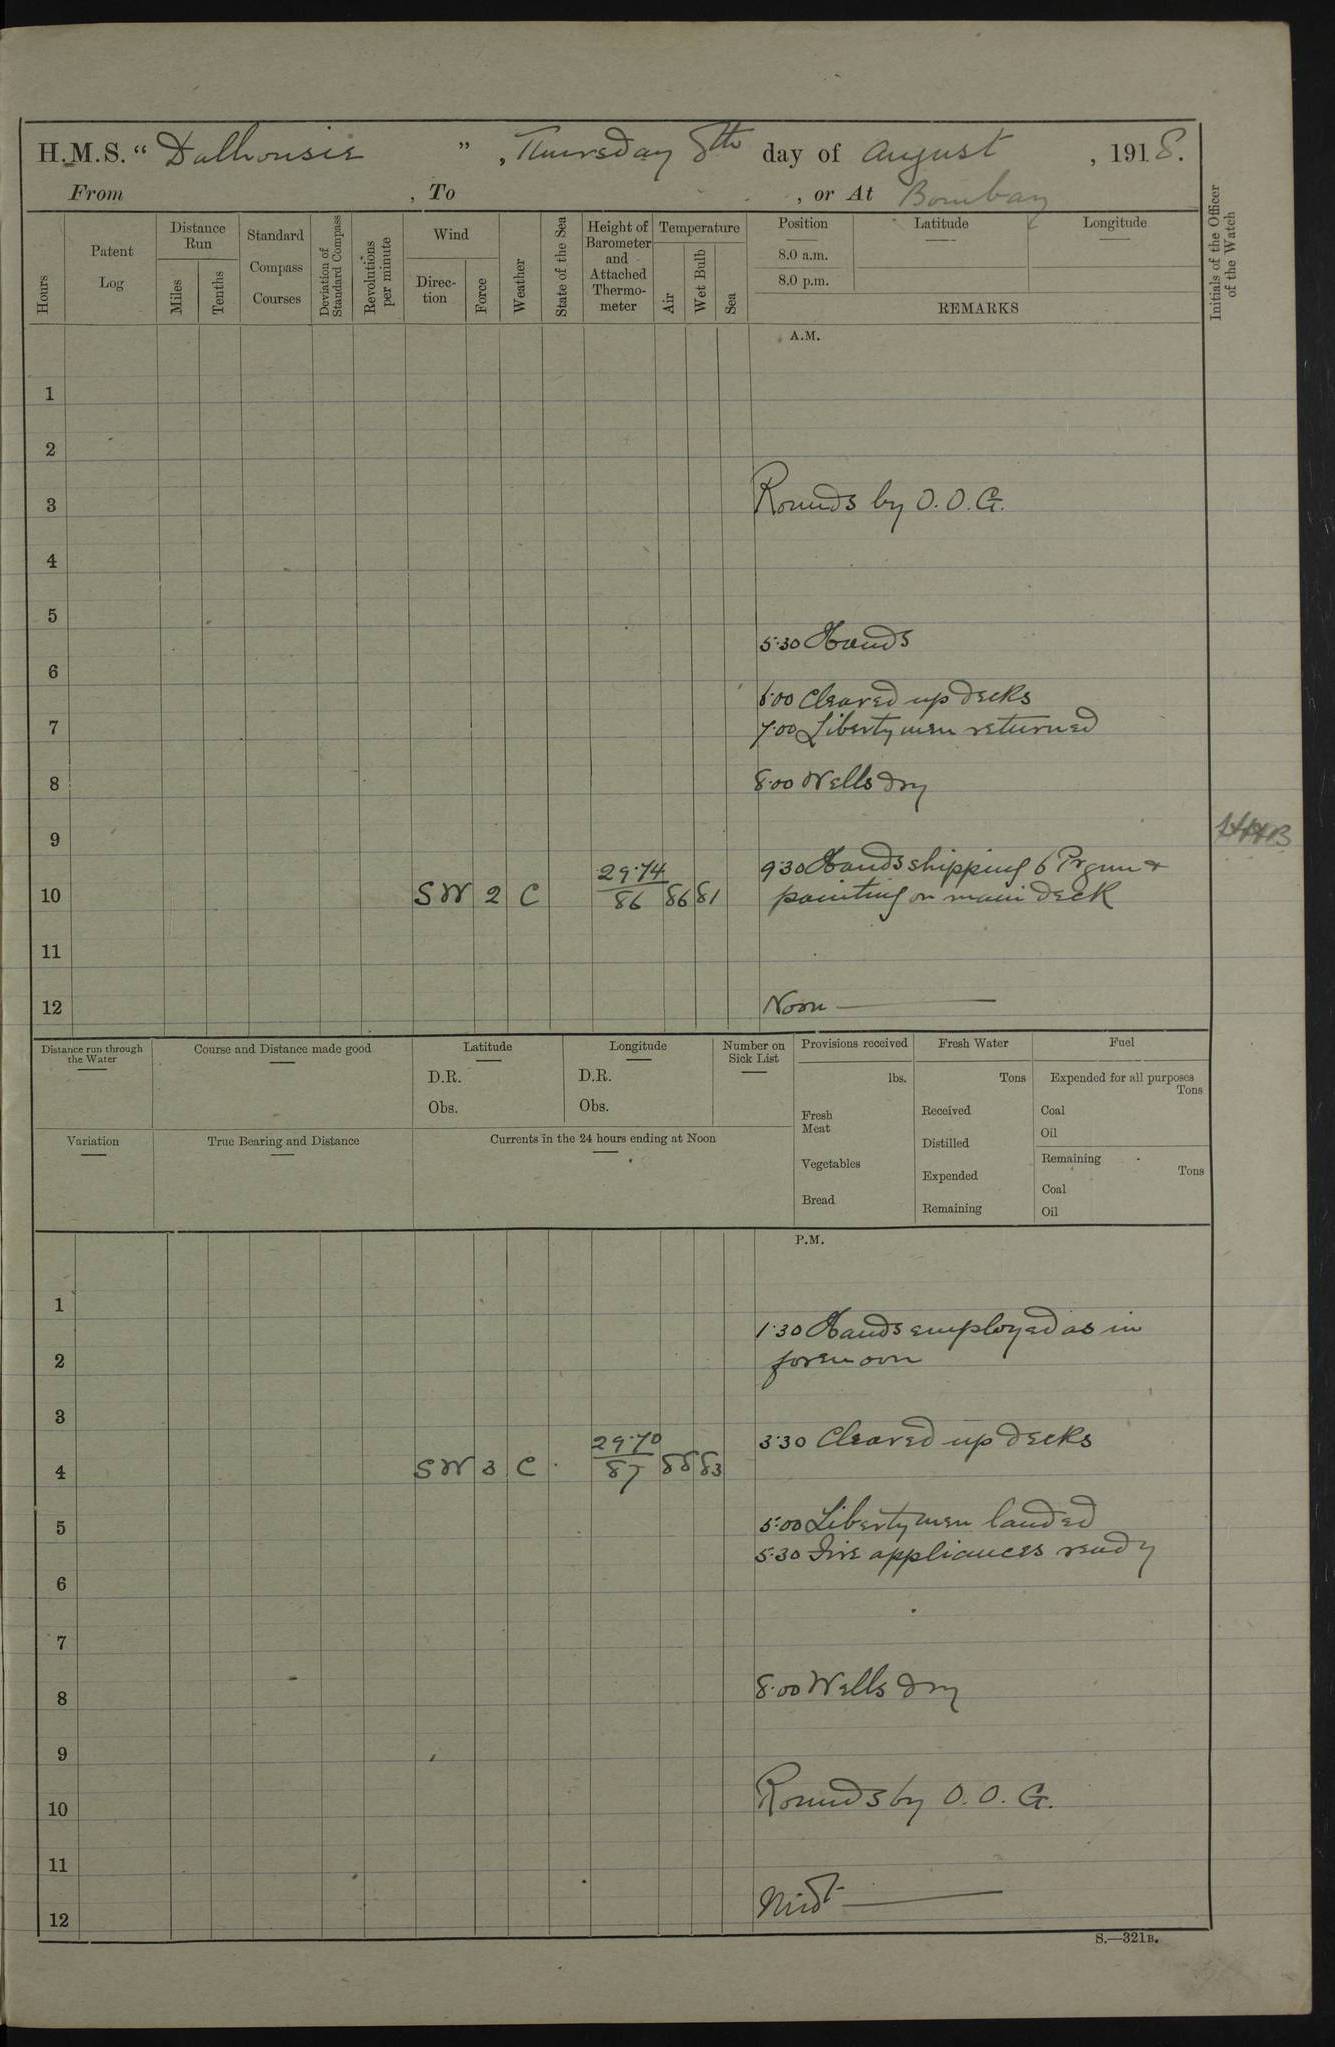 H.M.S. “ Dalhousie ” , Thursday 8th day of August , 1918.
From , To , or At Bombay
Hours
Patent Log
Distance Run
Miles
Tenths
Standard Compass Courses
Deviation of Standard Compass
Revolutions per minute
Wind
Direction
Force
Weather
State of the Sea
Height of Barometer and Attached Thermometer
Temperature
Air
Wet Bulb
Sea
Position
8.0 a.m.
8.0 p.m.
Latitude
Longitude
REMARKS
Initials of the Officer of the Watch
A.M.
1
2
3 Rounds by O.O.G.
4
5
5.30 Hands
6
6.00 Cleared up decks
7 7.00 Liberty men returned
8 8.00 Wells dry
9
29.74 9.30 Hands shipping 6 Pr gun &
10 SW 2 C 86 86 81 painting on main deck
11
12 Noon
Distance run through the Water
Course and Distance made good
Latitude
D.R.
Obs.
Longitude
D.R.
Obs.
Number on Sick List
Provisions received
lbs.
Fresh Meat
Vegetables
Bread
Fresh Water
Tons
Received
Distilled
Expended
Remaining
Fuel
Expended for all purposes
Tons
Coal
Oil
Remaining
Tons
Coal
Oil
Variation
True Bearing and Distance
Currents in the 24 hours ending at Noon
P.M.
1
1.30 Hands employed as in
2 forenoon
3
29.70 3.30 Cleared up decks
4 SW 3 C 87 88 83
5 5.00 Liberty men landed
5.30 Fire appliances ready
6
7
8 8.00 Wells dry
9
10 Rounds by O.O.G.
11
12 Midt
S.—321B.